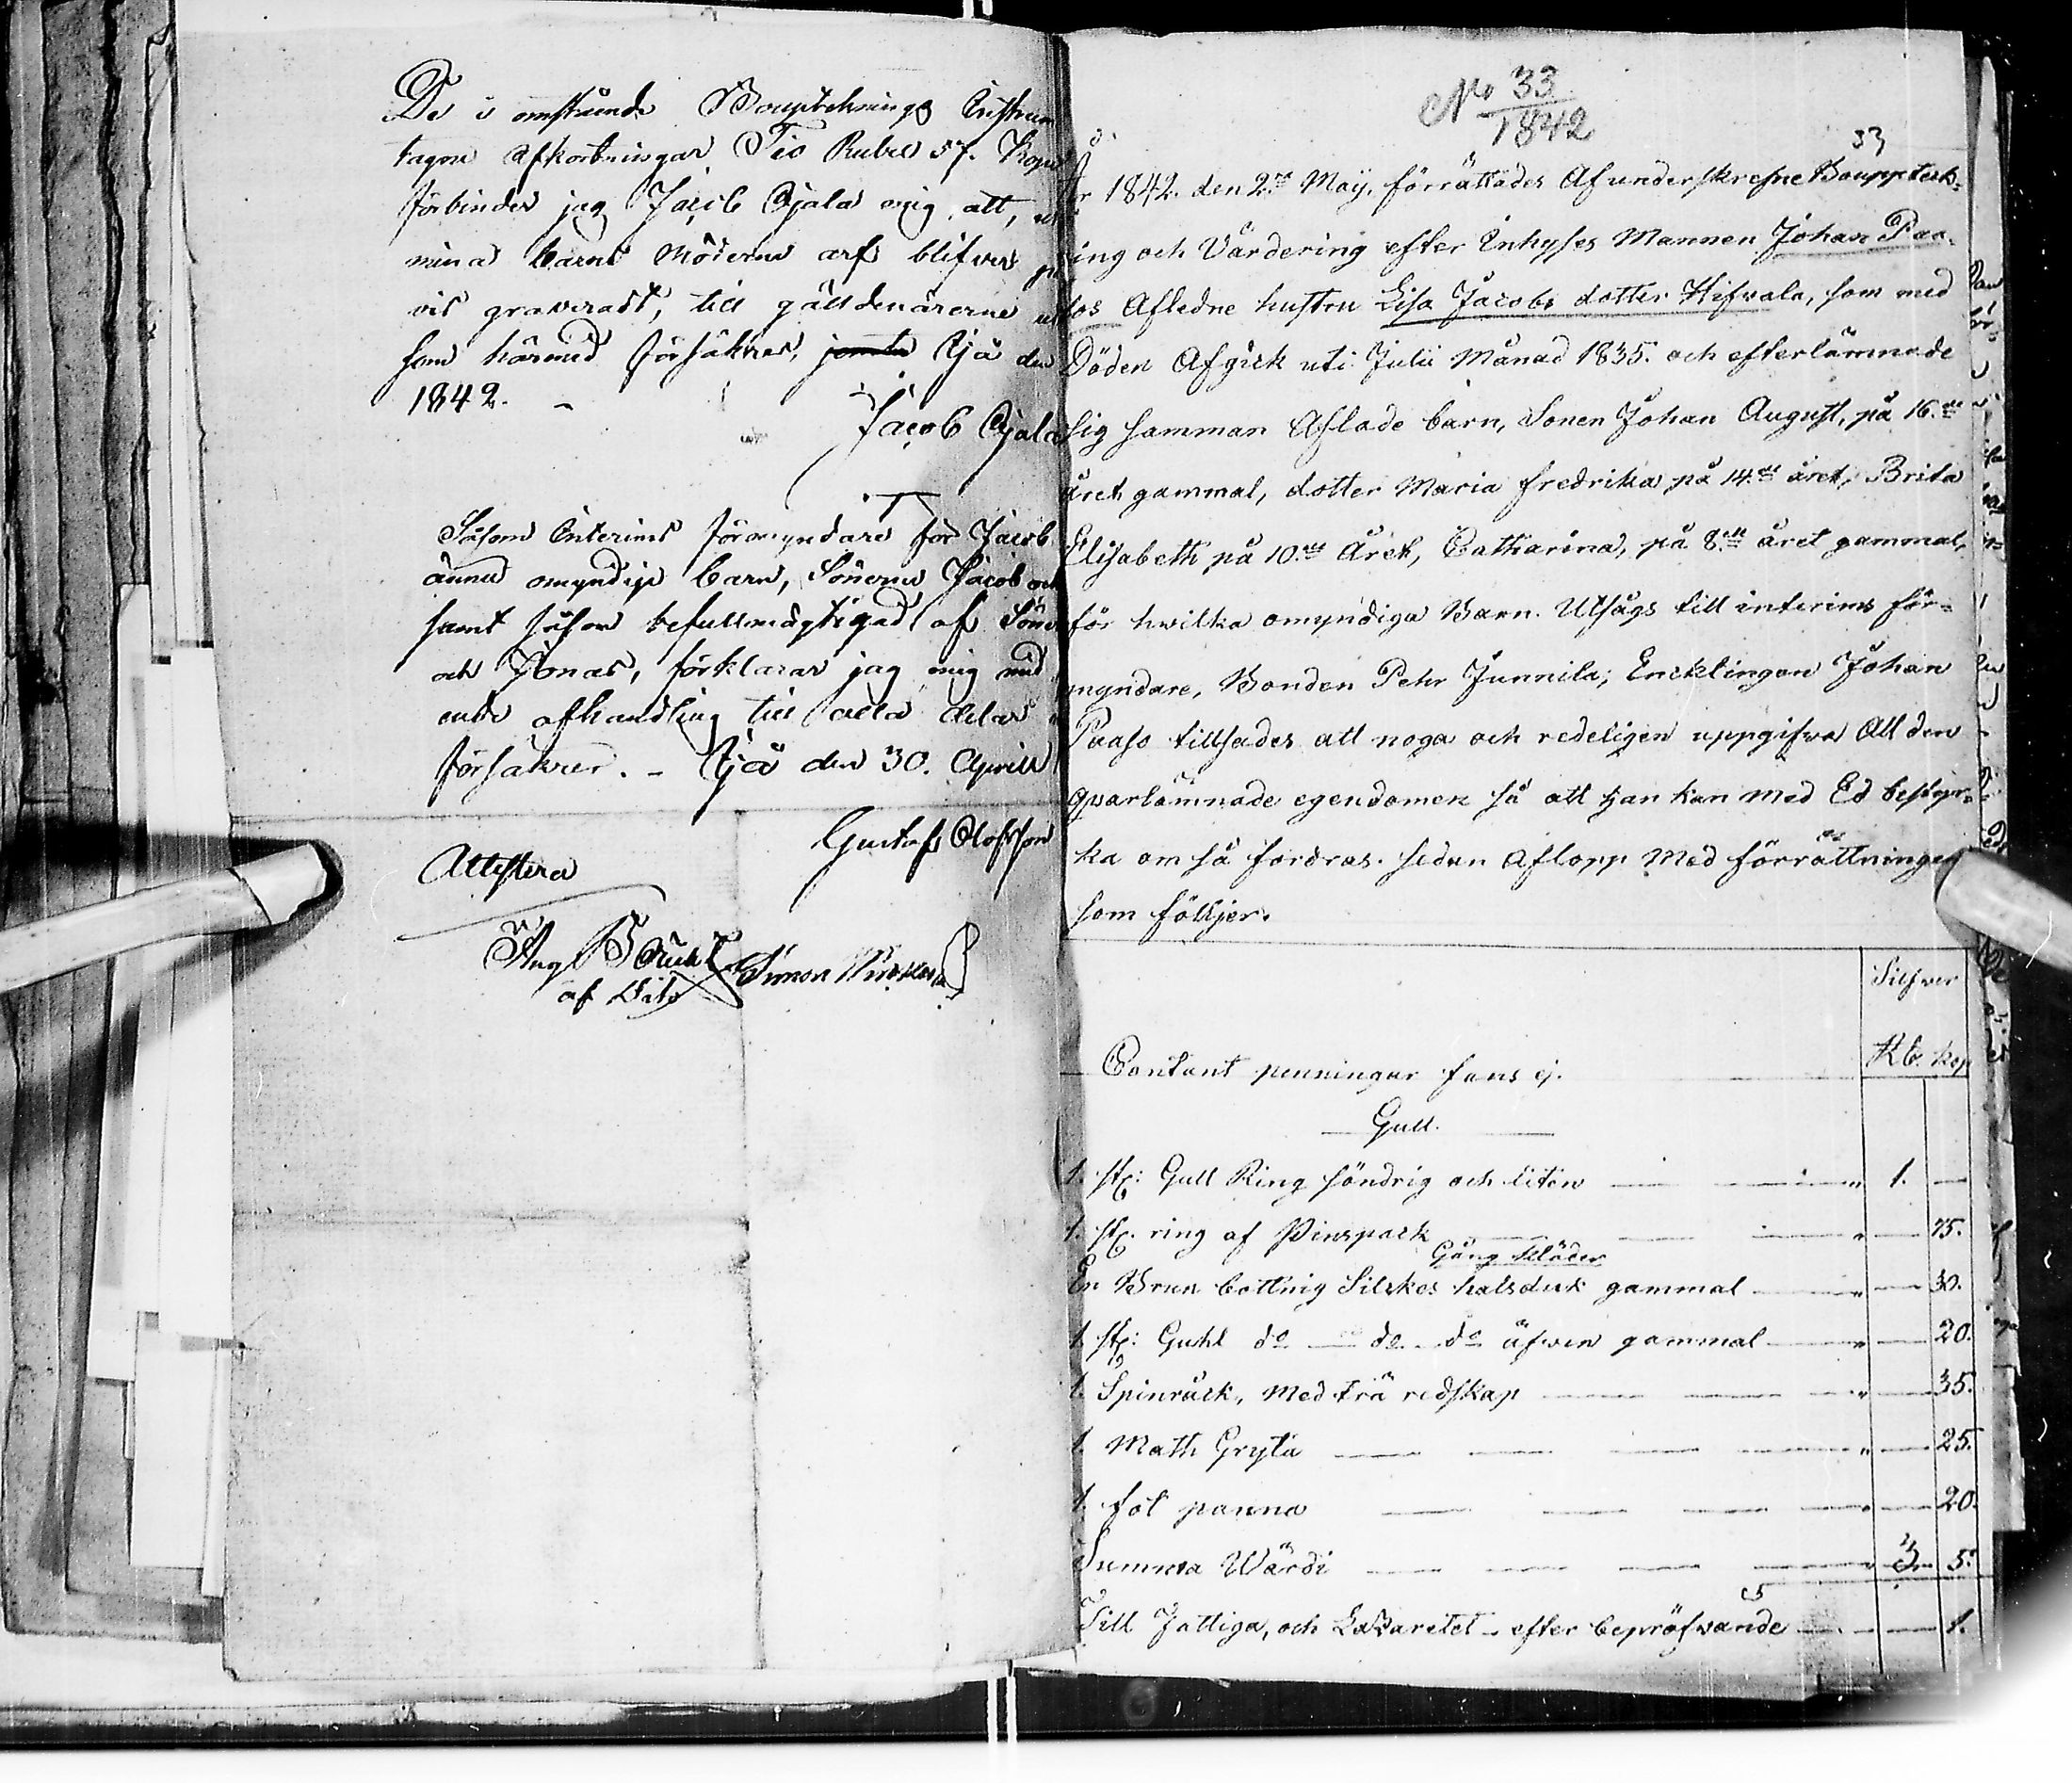 De i omstående Bouptecknings Instrum
tagne afkortningar Tio Rubel 57. Kope
förbinder jag Jacob Ojala mig, att,
mina barns Möderne arf blifver
vis graveradt, till gäldenärerne
som härmed försäkras, Ojä den
1842.
Jacob Ojala
Såsom Interims förmyndare för Jacob
ännu omyndige barn, Sönerne Jacob och
samt såsom befullmägtigad af Söner
och Jonas, förklarar jag mig med
ende afhandling till alla delar
försäkrer. - Ojä den 30. Aprill
Gustaf Olofsson
Attestera
af Simon
No 33
1842
33
År 1842. den 2.ra Maij, förrättades Af underskrefne Bouppteck-
ning och Värdering efter Inhyses Mannen Johan Paa-
sos Afledne hustru Lisa Jacobs dotter Hifvala, som med
Döden Afgick uti Julii Månad 1835. och efterlämnade
sig samman Aflade barn, Sonen Johan August, på 16.de
året gammal, dotter Maria Fredrika på 14.de året, Brita
Elisabeth på 10.de Året, Catharina, på 8.de året gammal,
för hwilka omyndiga Barn. Utsågs till interims för-
myndare, Bonden Pehr Junnila; Encklingen Johan
Paaso tillsades att noga och redeligen uppgifva All den
qvarlämnade egendomen så att han kan med Ed bestyr-
ka om så fordras. sedan aflopp Med förrättningen
som följer.
Silfver
Rb. kop
Contant penningar fans ej.
Gull.
1. st: Gull Ring söndrig och liten 1. —
1. st. ring af Pinspack — 75.
Gång kläder
En Brun bottnig Silkes halsduk gammal — 30.
1. st: Guhl do do do äfven gammal — 20.
1. Spinråck, Med trä redskap — 35.
1. Math Gryta — 25.
1. fot panna — 20.
Summa Wärdi 3. 5.
Till Fattiga, och Lazaretet efter bepröfvande — 1.